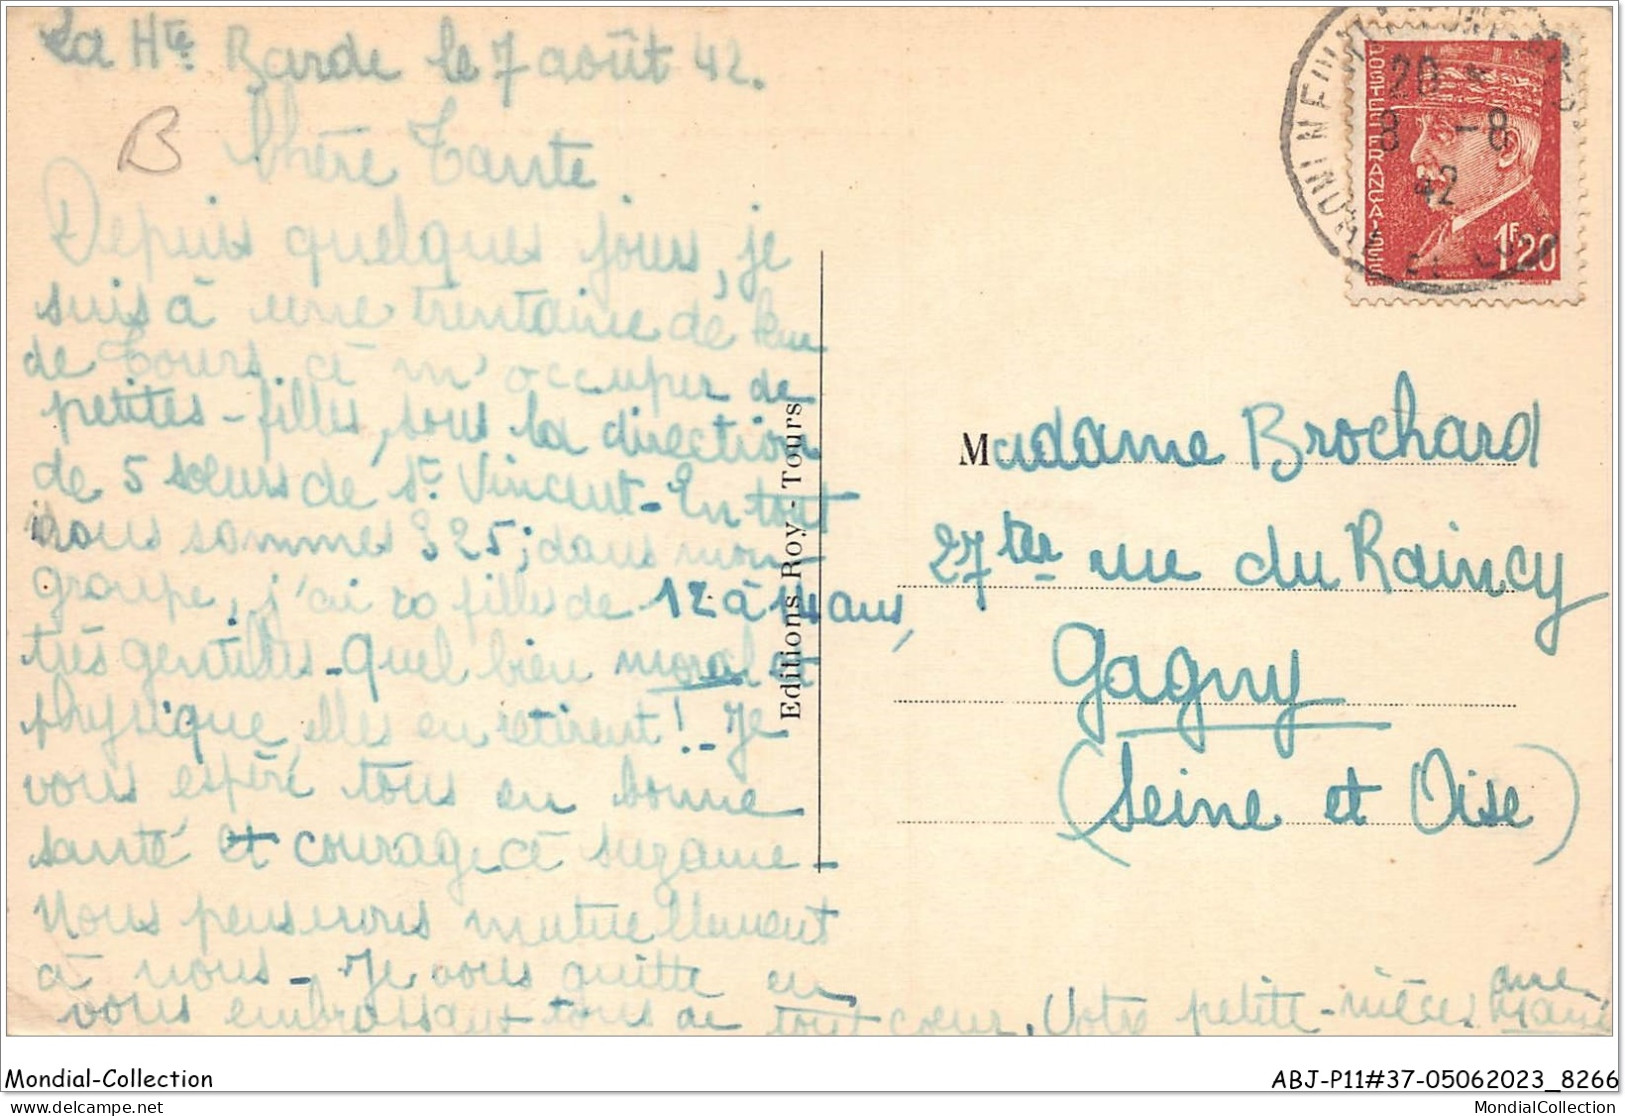 La Hte Barde le 7 août 42.
B
Chère Tante
Depuis quelques jours, je
suis à une trentaine de km
de Tours à m'occuper de
petites-filles, sous la direction
de 5 sœurs de St. Vincent - En tout
nous sommes 325; dans mon
groupe, j'ai 20 filles de 12 à 14 ans,
très gentilles - quel bien moral et
physique, elles en retirent! - Je
vous espère tous en bonne
santé et courage à Suzanne -
Nous penserons mutuellement
à nous - Je vous quitte en
vous embrassant tous de tout cœur. Votre petite-nièce
Editions Roy - Tours
POSTES FRANÇAISES
1F20
20 *
8 -8
42
INDRE ET LOIRE
Madame Brochard
27ter rue du Raincy
Gagny
(Seine et Oise)
Mondial-Collection
ABJ-P11#37-05062023_8266
delcampe.net
MondialCollection